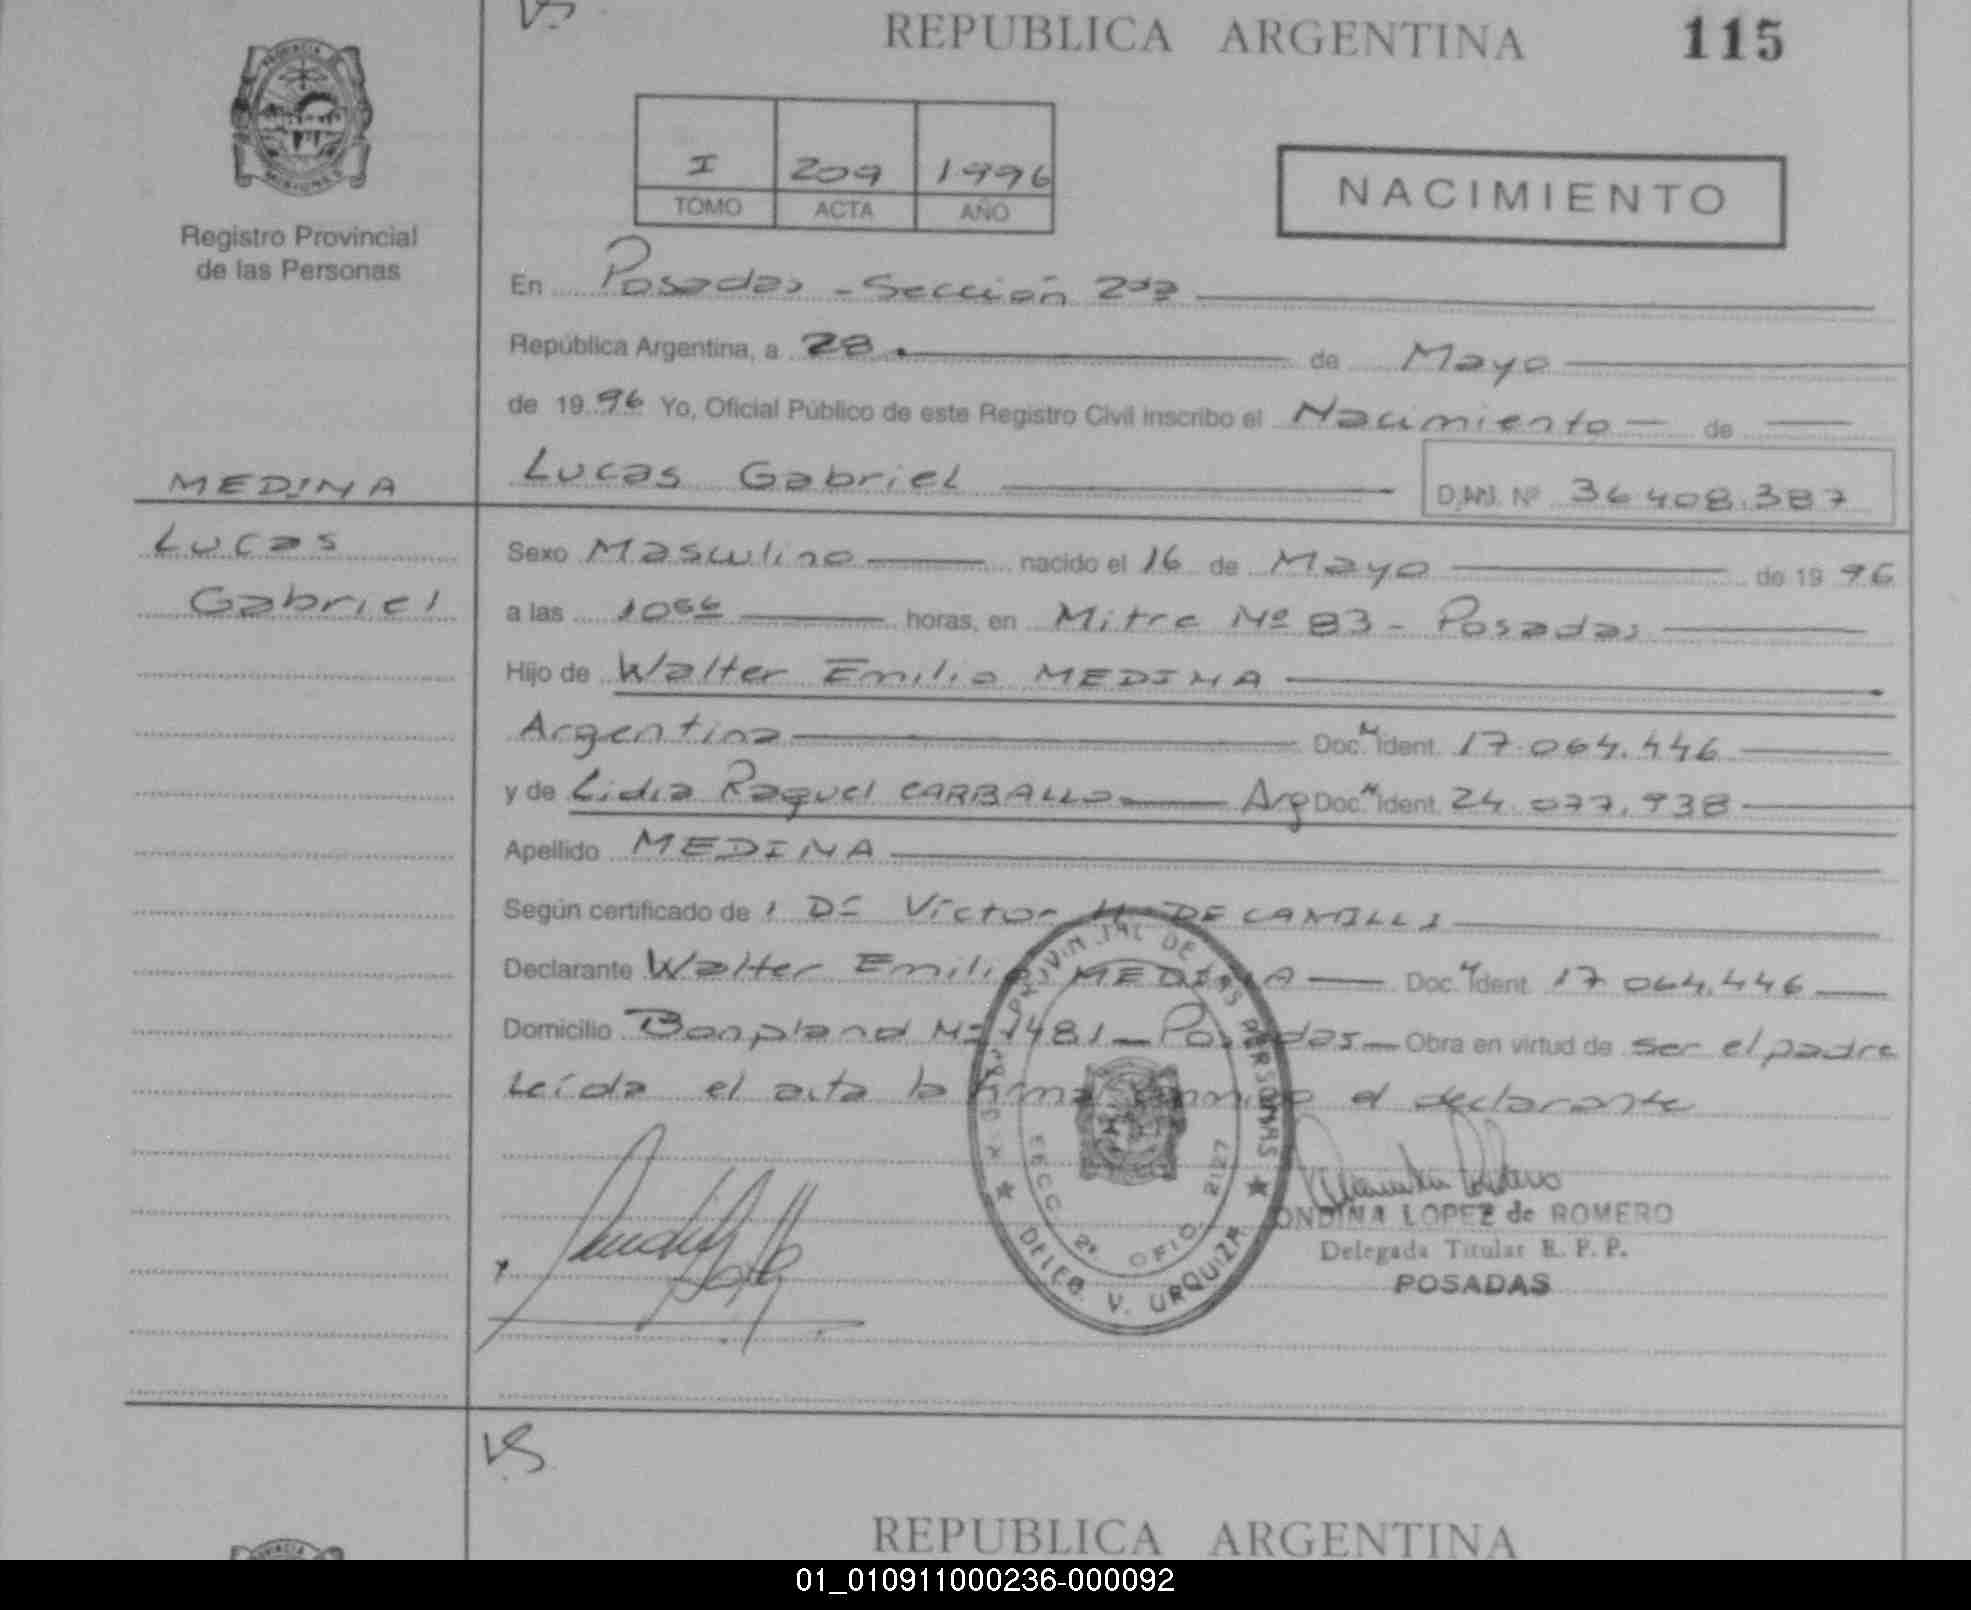 VS
REPUBLICA ARGENTINA 115
PROVINCIA
MISIONES
Registro Provincial
de las Personas
I 209 1996
TOMO ACTA AÑO
NACIMIENTO
En Posadas - Sección 2da
República Argentina, a 28 de Mayo
de 1996 Yo, Oficial Público de este Registro Civil inscribo el Nacimiento de
Lucas Gabriel D.N.I. Nº 36408.387
MEDINA
Lucas
Gabriel
Sexo Masculino nacido el 16 de Mayo de 1996
a las horas, en Mitre Nº 83 - Posadas
Hijo de Walter Emilio MEDINA
Argentina Doc. Ident. 17.064.446
y de Lidia Raquel CARBALLO Arg Doc. Ident. 24.077.938
Apellido MEDINA
Según certificado de Victor H. DE CAMILLI
Declarante Walter Emilio MEDINA Doc. Ident. 17 064.446
Domicilio Bonpland Nº 1481 - Posadas - Obra en virtud de ser el padre
Leída el acta la firma conmigo el declarante
PROVINCIAL DE LAS PERSONAS
SECC. 2ª OFIC. 2127
DELEG. V. URQUIZA
ONDINA LOPEZ de ROMERO
Delegada Titular R. P. P.
POSADAS
VS
REPUBLICA ARGENTINA
PROVINCIA
01_010911000236-000092